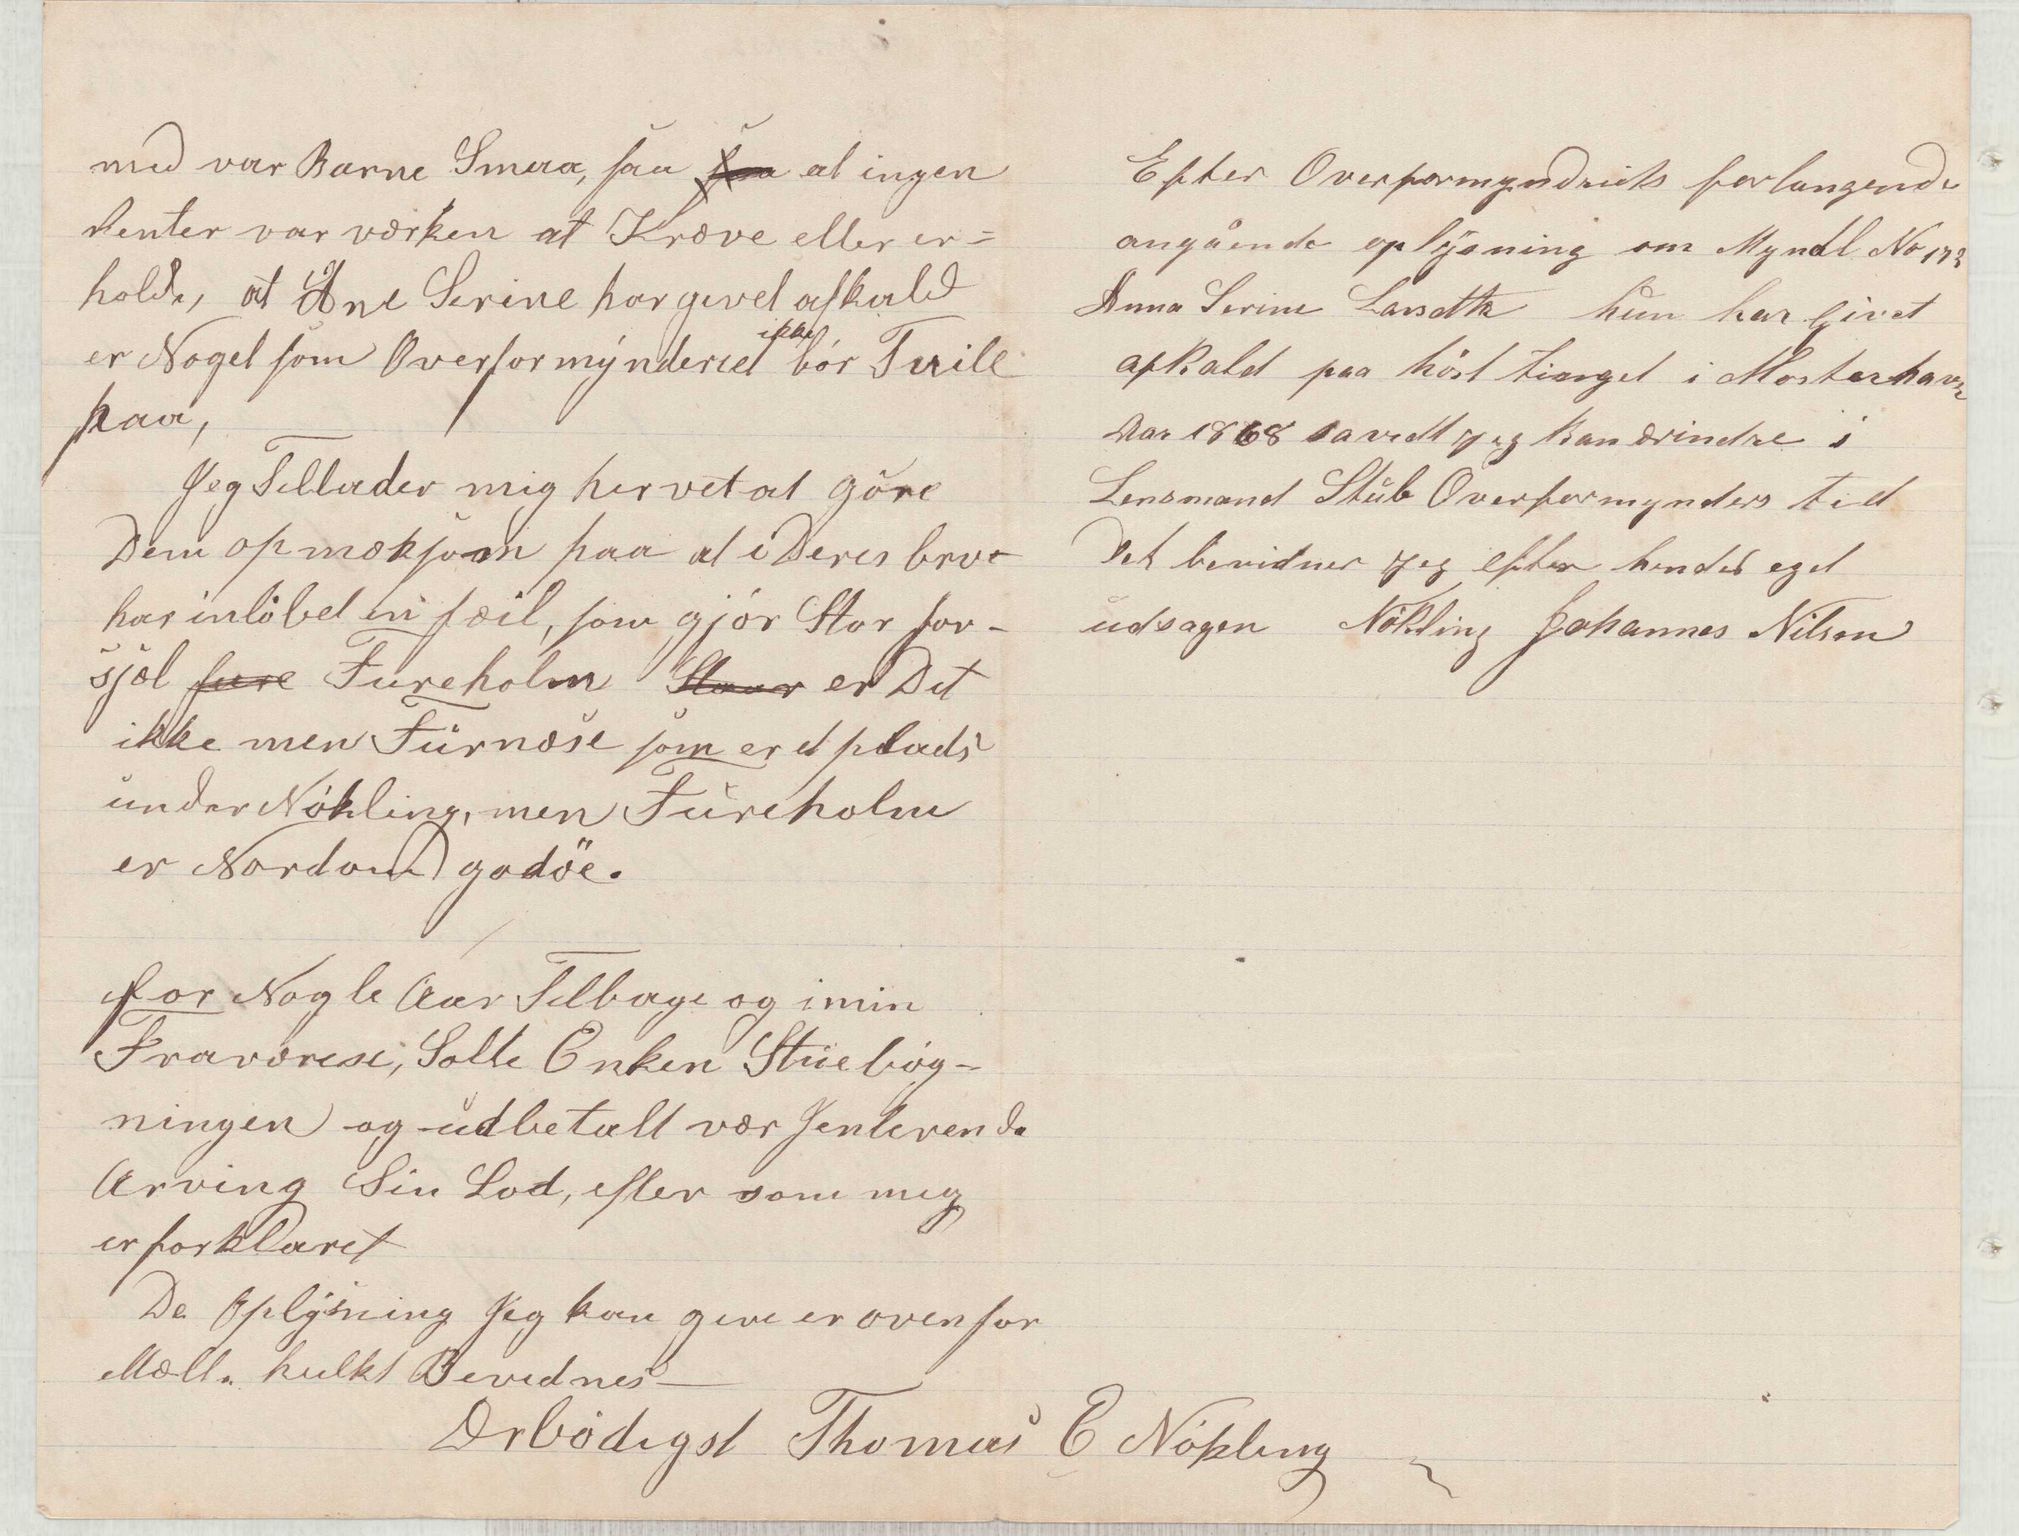 med var Barne Smaa, saa saa at ingen
Renter var værken at Kræve eller er=
holde, at Ane Serine har gevet afkald
er Noget som Overformynderiet ikke bör Tvile
paa,
Jeg Tellader mig hervet at göre
Dem opmæksom paa at i Deres brve
har inlöbet en fæil, som gjör Stor for-
sjæl fure Fureholm Staar er Det
ikke men Furnæse som er et plads
under Nökling, men Fureholm
er Nordom godöe.
for Nogle Aar Telbage og i min
Fraværese, Solte Enken Stuebög-
ningen og udbetalt vær Jenlevende
Arving Sin Lod, efter som meg
er forklaret
De Oplysning Jeg kan geve er ovenfor
Mælt. hulkt Bevednes
Ærbödigst Thomas E Nökling
Efter Overformyndriets forlangende
angående oplysning om Myndl No 173
Anna Serine Larsdtr hun har Givet
afkald paa höst tinget i Mosterhavn
Aar 1868 savidt jeg kan ærindre i
Lensmand Stub Overformynders tid
Det bevidner jeg efter hendes eget
udsagen Nökling Johannes Nilsen